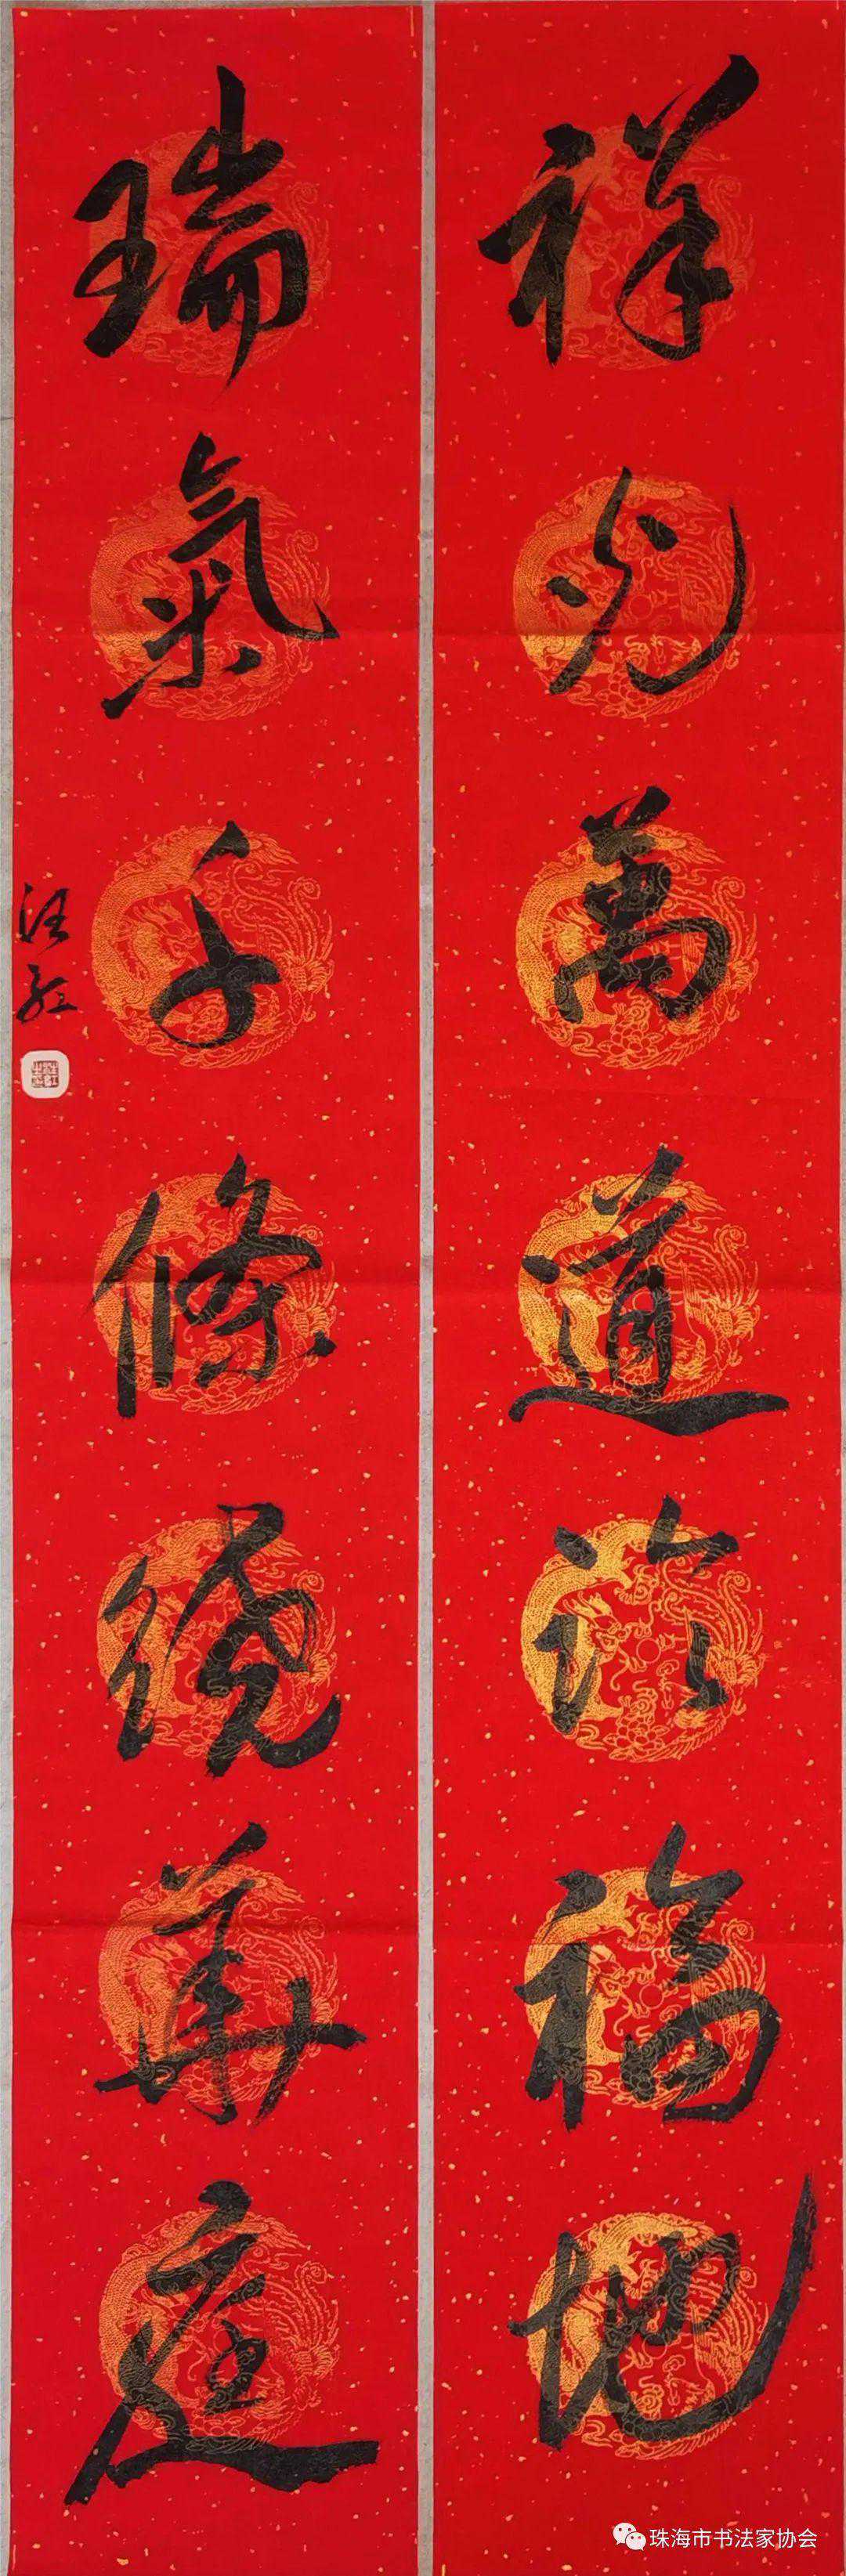 祥光萬道臨福地
瑞氣千條繞華庭
汪红
珠海市书法家协会